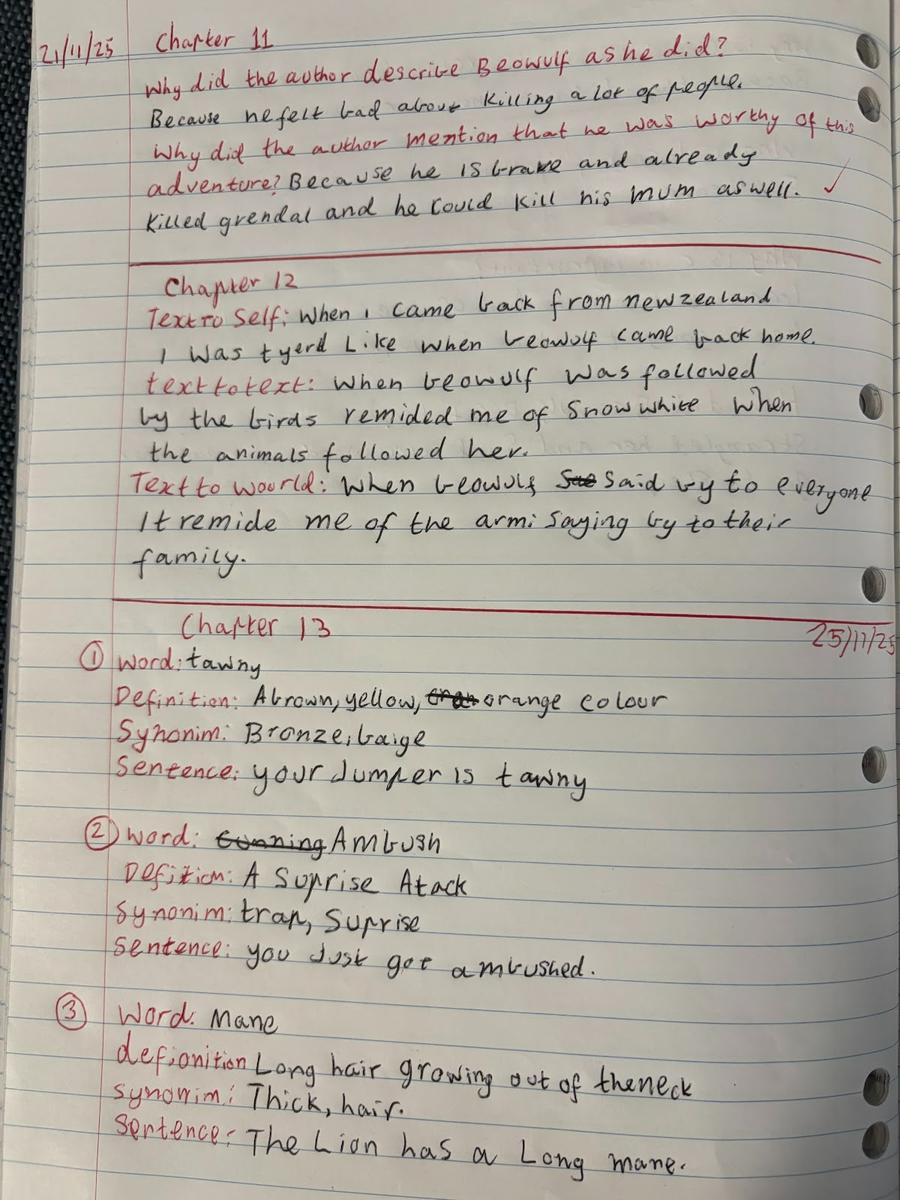 21/11/25 Chapter 11
Why did the author describe Beowulf as he did?
Because he felt bad about killing a lot of people.
Why did the author mention that he was worthy of this
adventure? Because he is brave and already
killed grendal and he could kill his mum aswell. ✓
Chapter 12
Text to Self: When i came back from newzealand
I was tyerd Like when beowulf came back home.
text to text: When beowulf was followed
by the birds remided me of Snow white when
the animals followed her.
Text to woorld: When beowulf said by to everyone
It remide me of the armi saying by to their
family.
Chapter 13 25/11/25
① Word: tawny
Definition: A brown, yellow, orange colour
Synonim: Bronze, baige
Sentence: your Jumper is tawny
② Word: Cunning Ambush
Defition: A Suprise Atack
Synonim: trap, Suprise
Sentence: you Just got ambushed.
③ Word: Mane
defionition Long hair growing out of the neck
synonim: Thick, hair.
Sentence: The Lion has a Long mane.